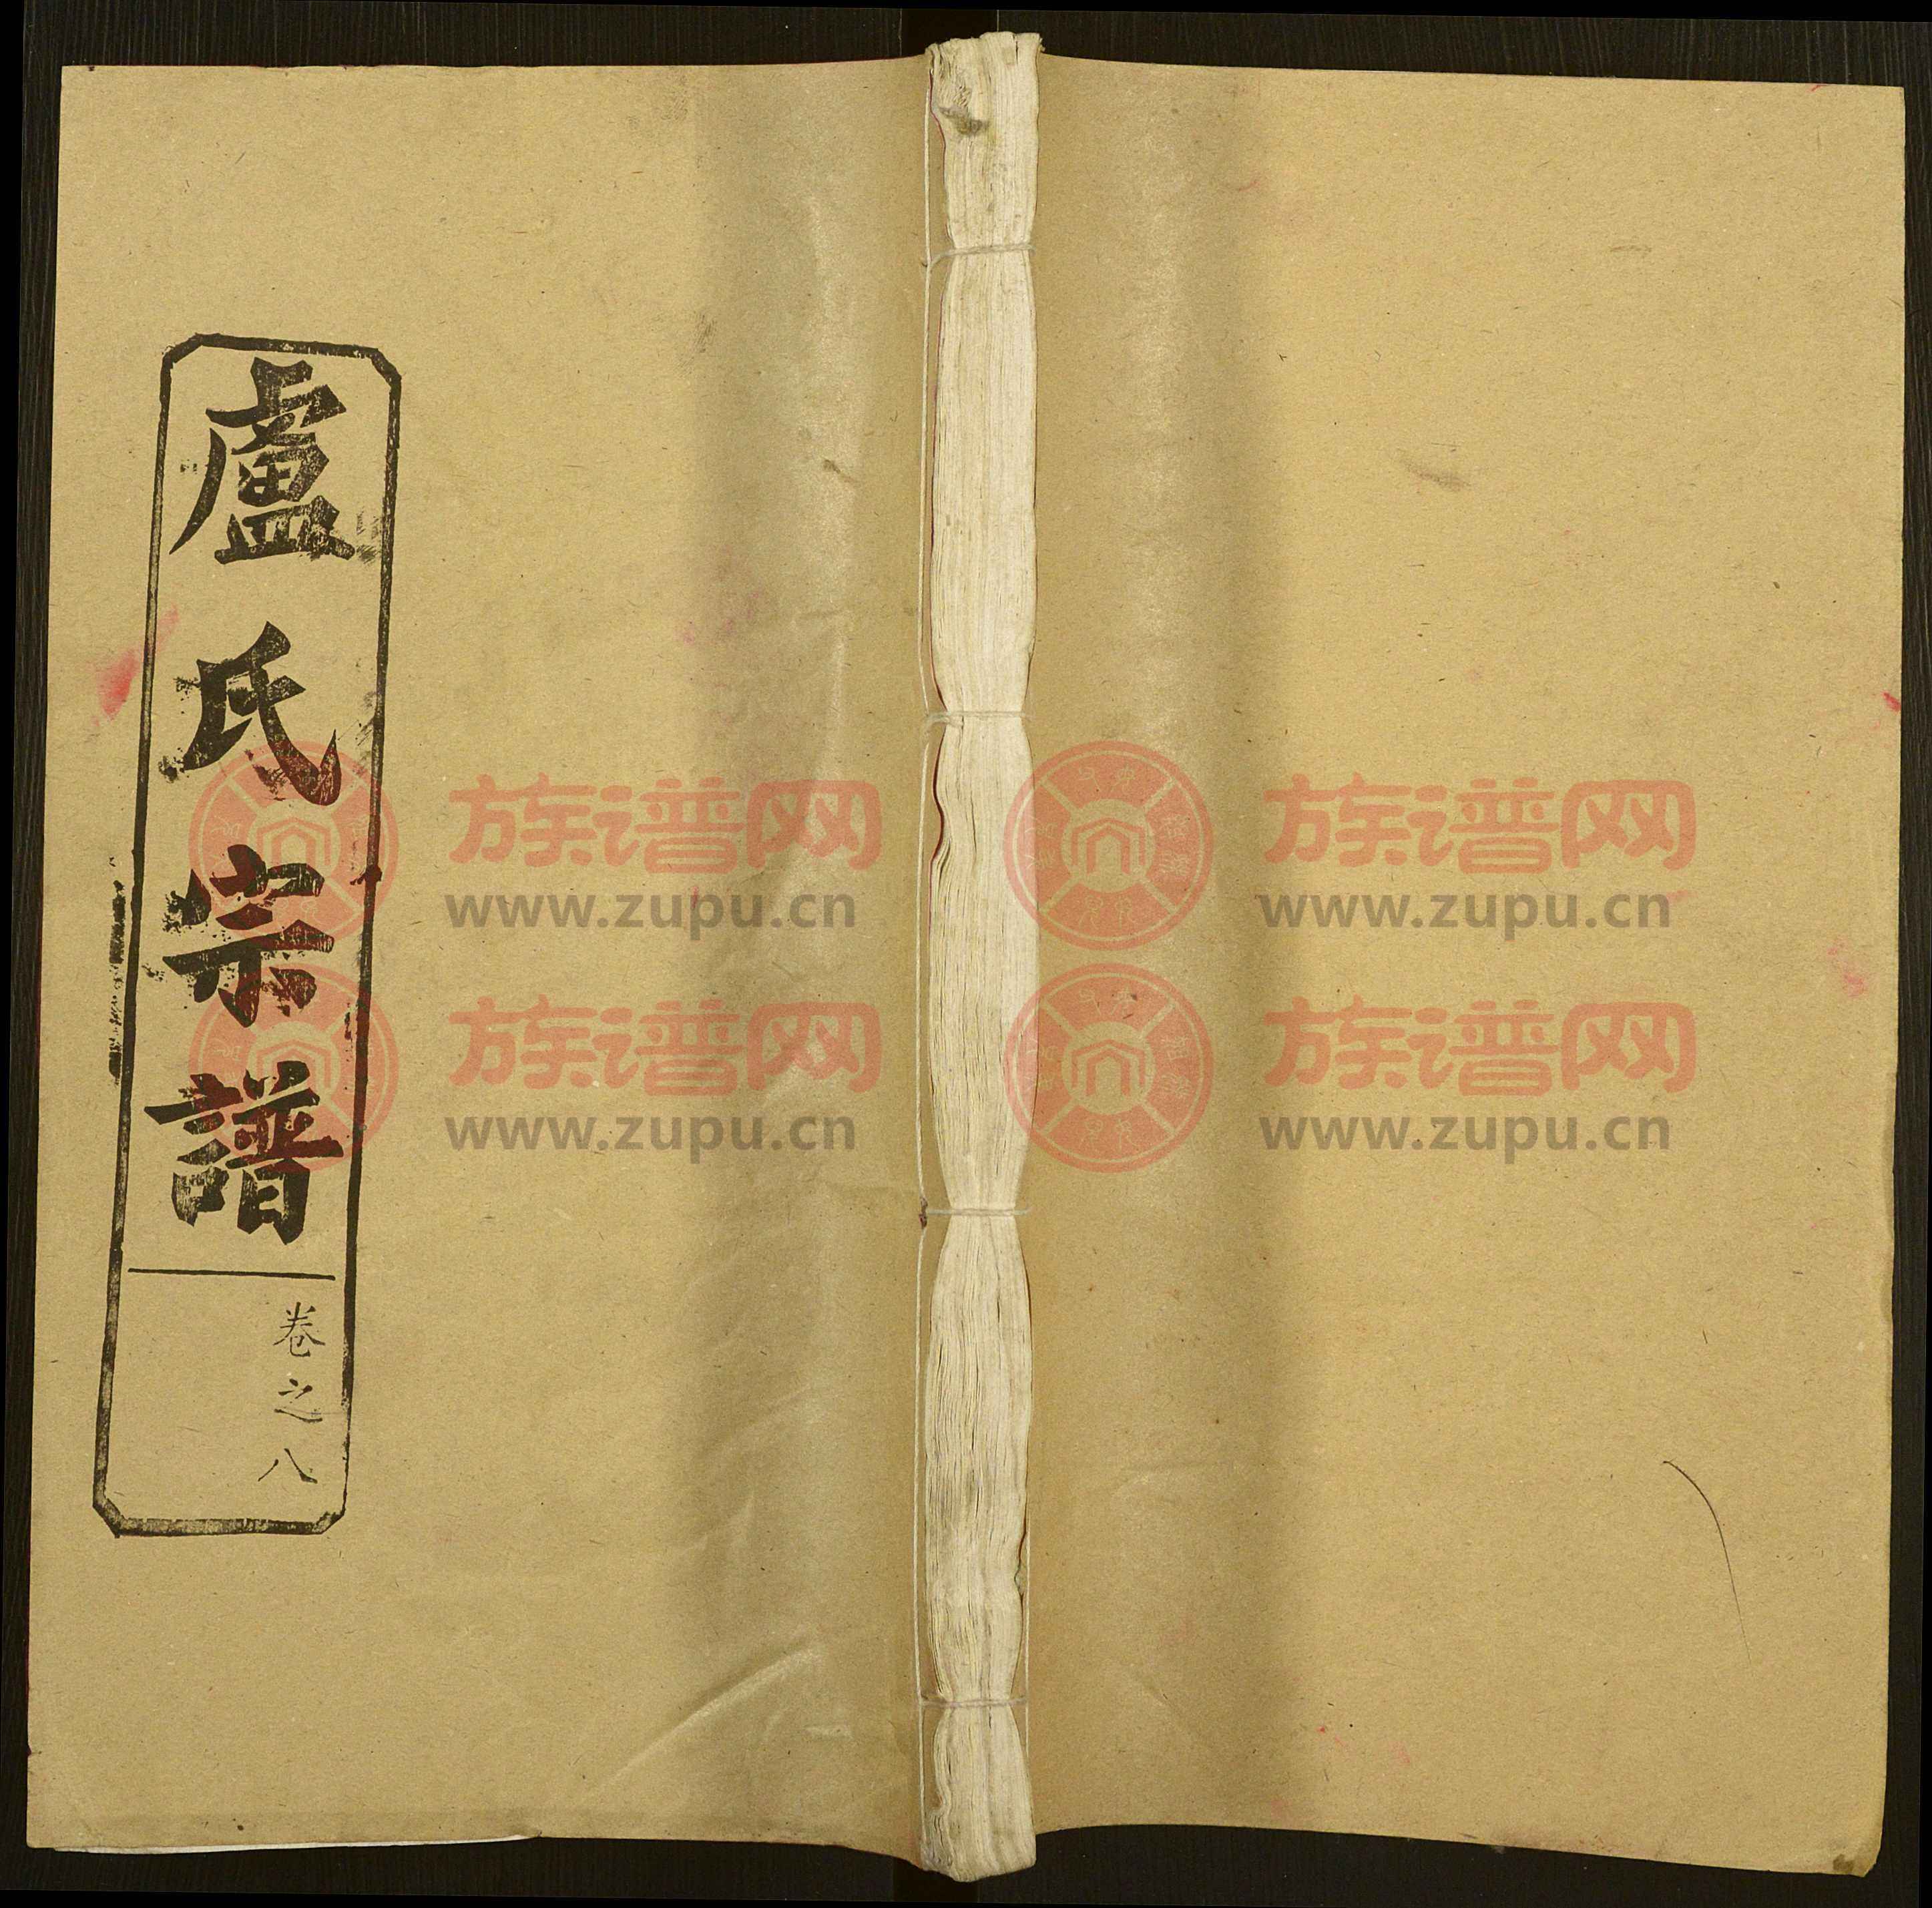 盧氏宗譜
卷之八
族谱网
www.zupu.cn
族谱网
www.zupu.cn
族谱网
www.zupu.cn
族谱网
www.zupu.cn